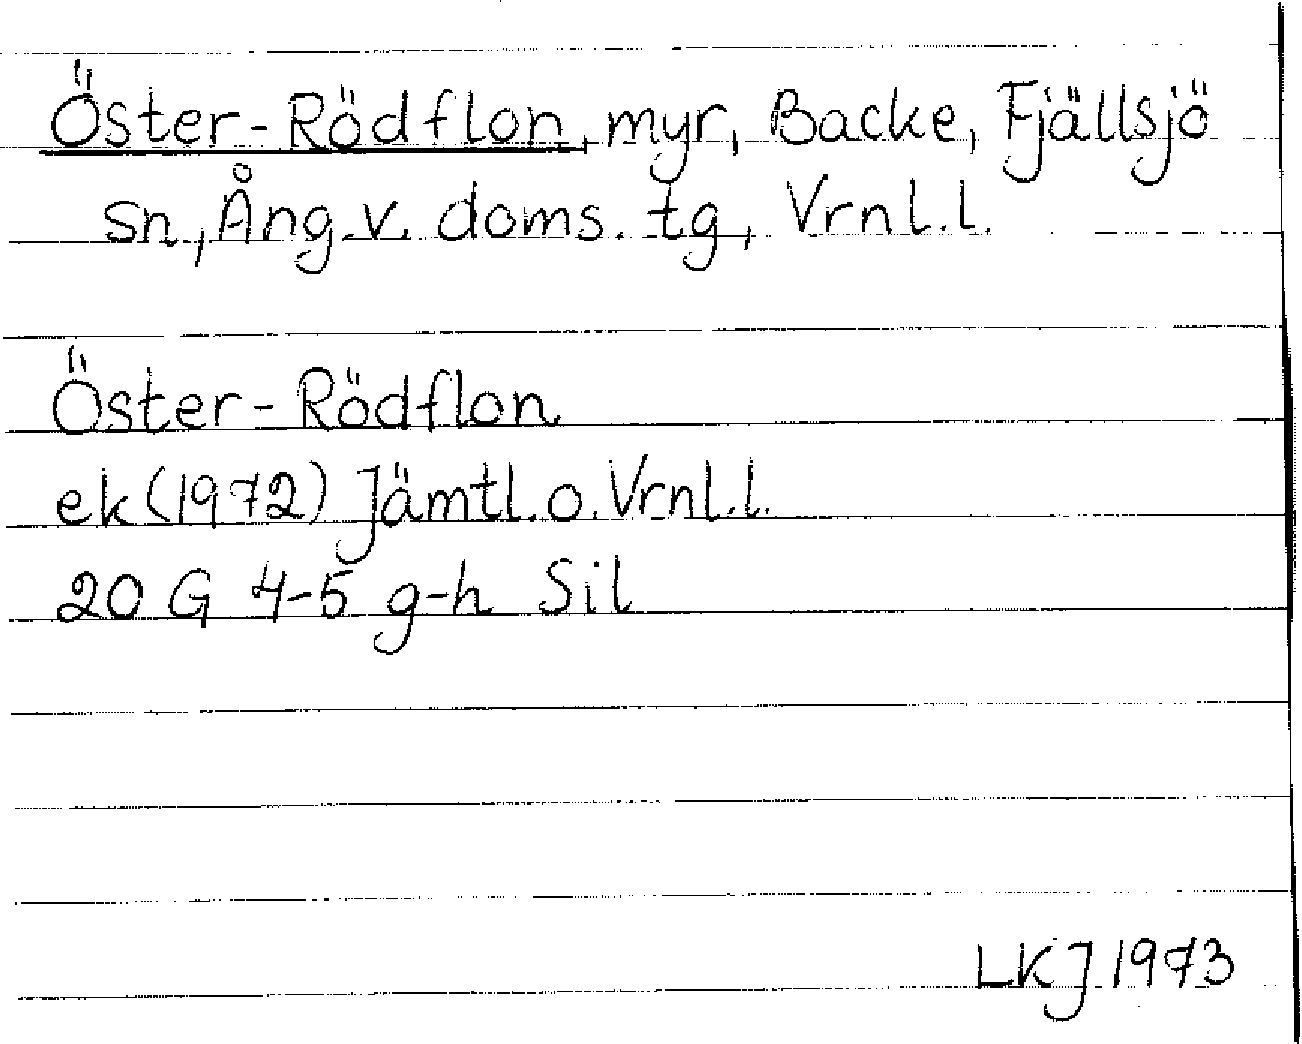 Öster-Rödflon, myr, Backe, Fjällsjö
sn, Ång. v. doms. tg, Vrnl.l.
Öster-Rödflon
ek (1972) Jämtl. o. Vrnl.l.
20 G 4-5 g-h Sil
LKJ 1973